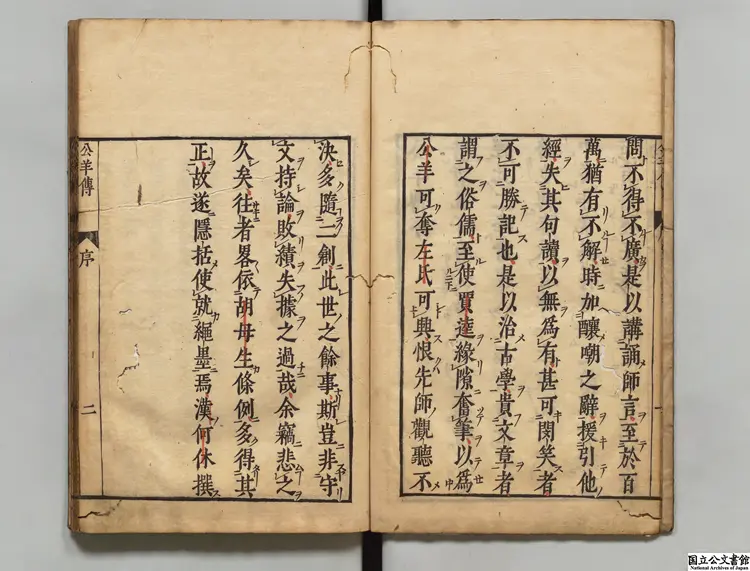 問不得不廣是以講誦師言至於百
萬猶有不解時加釀嘲之辭援引他
經失其句讀以無爲有甚可閔笑者
不可勝記也是以治古學貴文章者
謂之俗儒至使賈逵緣隙奮筆以爲
公羊可奪左氏可興恨先師觀聽不
決多隨二創此世之餘事斯豈非守
文持論敗績失據之過哉余竊悲之
久矣往者畧依胡母生條例多得其
正故遂隱括使就繩墨焉漢何休撰
公羊傳
序
二
国立公文書館
National Archives of Japan